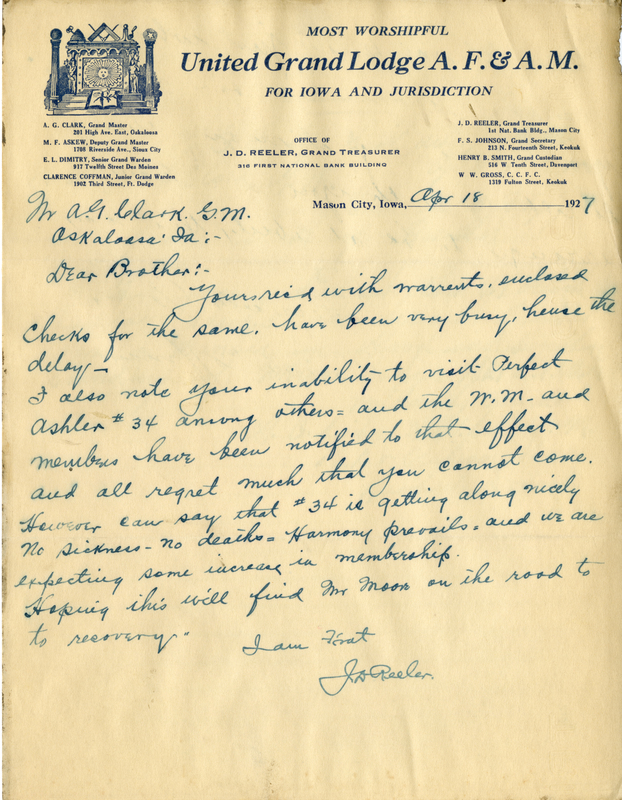 MOST WORSHIPFUL
United Grand Lodge A. F. & A. M.
FOR IOWA AND JURISDICTION
A. G. CLARK, Grand Master
201 High Ave. East, Oskaloosa
M. F. ASKEW, Deputy Grand Master
1708 Riverside Ave., Sioux City
E. L. DIMITRY, Senior Grand Warden
917 Twelfth Street Des Moines
CLARENCE COFFMAN, Junior Grand Warden
1902 Third Street, Ft. Dodge
OFFICE OF
J. D. REELER, GRAND TREASURER
316 FIRST NATIONAL BANK BUILDING
J. D. REELER, Grand Treasurer
1st Nat. Bank Bldg., Mason City
F. S. JOHNSON, Grand Secretary
213 N. Fourteenth Street, Keokuk
HENRY B. SMITH, Grand Custodian
526 W Tenth Street, Davenport
W. W. GROSS, C. C. F. C.
1319 Fulton Street, Keokuk
Mason City, Iowa, Apr 18 1927
Mr A.G. Clark. G.M.
Oskaloosa Ia:-
Dear Brother:-
Yours rec'd with warrants, enclosed
checks for the same, have been very busy, hense the
delay-
I also note your inability to visit Perfect
Ashler #34 among others = and the W.M. and
members have been notified to that effect
and all regret much that you cannot come.
However can say that #34 is getting along nicely
No sickness - no deaths = Harmony prevails = and we are
expecting some increase in membership.
Hoping this will find Mr Moore on the road to
to recovery"
I am Frat
J.D. Reeler.